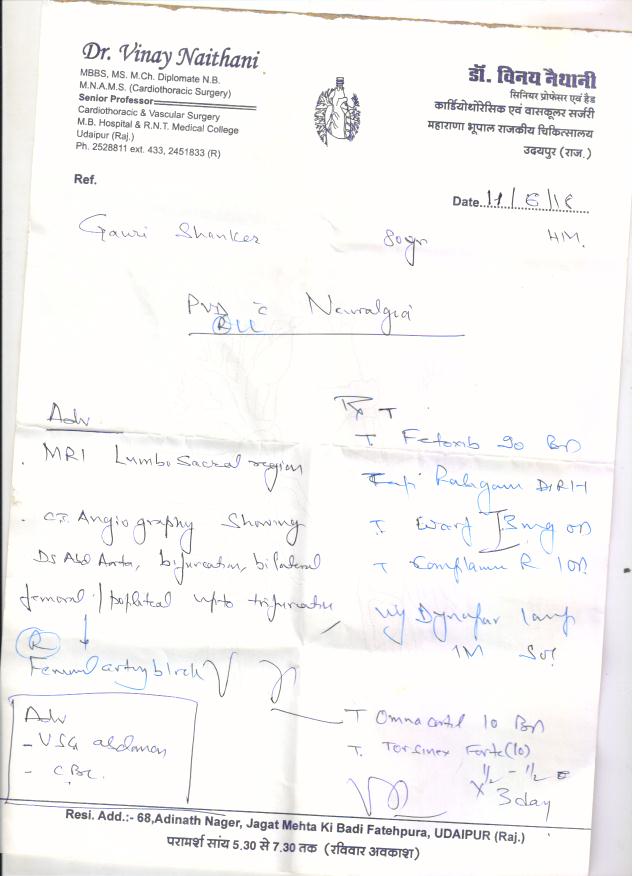 Dr. Vinay Naithani
MBBS, MS. M.Ch. Diplomate N.B.
M.N.A.M.S. (Cardiothoracic Surgery)
Senior Professor
Cardiothoracic & Vascular Surgery
M.B. Hospital & R.N.T. Medical College
Udaipur (Raj.)
Ph. 2528811 ext. 433, 2451833 (R)
डॉ. विनय नैथानी
सिनियर प्रोफेसर एवं हैड
कार्डियोथोरेसिक एवं वासकूलर सर्जरी
महाराणा भूपाल राजकीय चिकित्सालय
उदयपुर (राज.)
Ref.
Date
Gauri Shanker 80yr
PVD c̄ Neuralgia
(R) LL
Adv
MRI Lumbo Sacral region
C.T. Angiography Showing
Ds Abd Aorta, bifurcation, bilateral
femoral / popliteal upto trifurcation
(R)
Femoral artery block
Adv
- USG abdomen
- CBC.
Rx T
T Fetoxib 90 BD
T. Ewarf 3mg OD
T R OD
Dynapar 1amp
IM
T Omnacortil 10 BD
T. Forte (10)
1/2 - 1/2
x 3 day
Resi. Add.:- 68,Adinath Nager, Jagat Mehta Ki Badi Fatehpura, UDAIPUR (Raj.)
परामर्श सांय 5.30 से 7.30 तक (रविवार अवकाश)